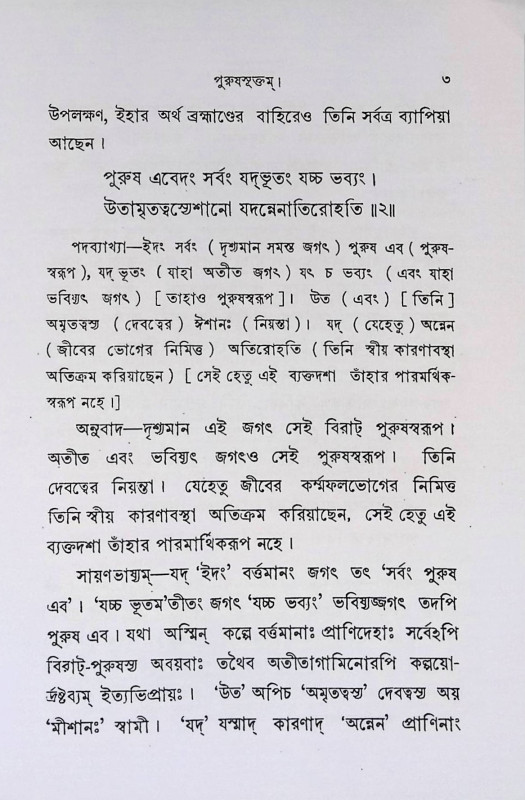 পুরুষসূক্তম্। ৩
উপলক্ষণ, ইহার অর্থ ব্রহ্মাণ্ডের বাহিরেও তিনি সর্বত্র ব্যাপিয়া
আছেন।
পুরুষ এবেদং সর্বং যদ্‌ভূতং যচ্চ ভব্যং।
উতামৃতত্বস্যেশানো যদন্নেনাতিরোহতি ॥২॥
পদব্যাখ্যা—ইদং সর্বং ( দৃশ্যমান সমস্ত জগৎ ) পুরুষ এব ( পুরুষ-
স্বরূপ ), যদ্ ভূতং ( যাহা অতীত জগৎ ) যৎ চ ভব্যং ( এবং যাহা
ভবিষ্যৎ জগৎ ) [ তাহাও পুরুষস্বরূপ ]। উত ( এবং ) [ তিনি ]
অমৃতত্বস্য ( দেবত্বের ) ঈশানঃ ( নিয়ন্তা )। যদ্ ( যেহেতু ) অন্নেন
( জীবের ভোগের নিমিত্ত ) অতিরোহতি ( তিনি স্বীয় কারণাবস্থা
অতিক্রম করিয়াছেন ) [ সেই হেতু এই ব্যক্তদশা তাঁহার পারমার্থিক-
স্বরূপ নহে।]
অনুবাদ—দৃশ্যমান এই জগৎ সেই বিরাট্ পুরুষস্বরূপ।
অতীত এবং ভবিষ্যৎ জগৎও সেই পুরুষস্বরূপ। তিনি
দেবত্বের নিয়ন্তা। যেহেতু জীবের কর্ম্মফলভোগের নিমিত্ত
তিনি স্বীয় কারণাবস্থা অতিক্রম করিয়াছেন, সেই হেতু এই
ব্যক্তদশা তাঁহার পারমার্থিকরূপ নহে।
সায়ণভাষ্যম্—যদ্ ‘ইদং’ বর্ত্তমানং জগৎ তৎ ‘সর্বং পুরুষ
এব’। ‘যচ্চ ভূতম’তীতং জগৎ ‘যচ্চ ভব্যং’ ভবিষ্যজ্জগৎ তদপি
পুরুষ এব। যথা অস্মিন্ কল্পে বর্ত্তমানাঃ প্রাণিদেহাঃ সর্বেঽপি
বিরাট্-পুরুষস্য অবয়বাঃ তথৈব অতীতাগামিনোরপি কল্পয়ো-
র্দ্রষ্টব্যম্ ইত্যভিপ্রায়ঃ। ‘উত’ অপিচ ‘অমৃতত্বস্য’ দেবত্বস্য অয়
‘মীশানঃ’ স্বামী। ‘যদ্’ যস্মাদ্ কারণাদ্ ‘অন্নেন’ প্রাণিনাং